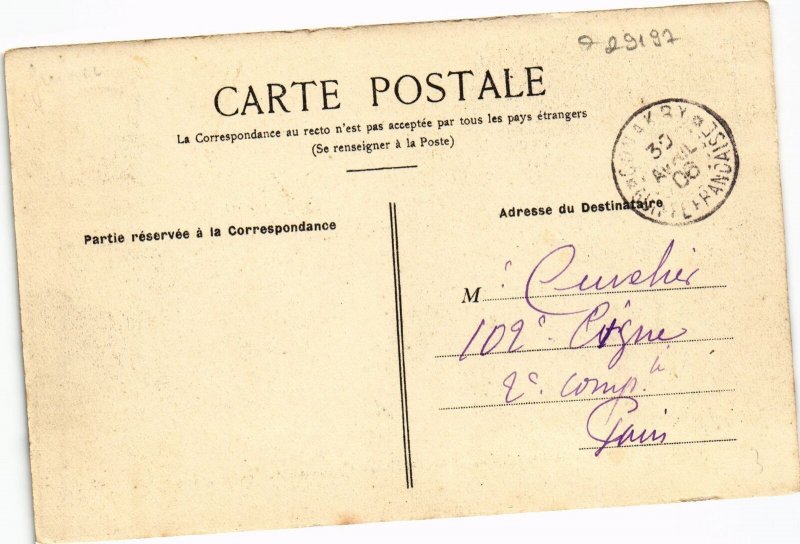 29197
CARTE POSTALE
La Correspondance au recto n'est pas acceptée par tous les pays étrangers
(Se renseigner à la Poste)
CONAKRY
30
AVRIL
06
GUINÉE FRANÇAISE
Partie réservée à la Correspondance
Adresse du Destinataire
M
102e Ligne
2e comp.ie
Paris